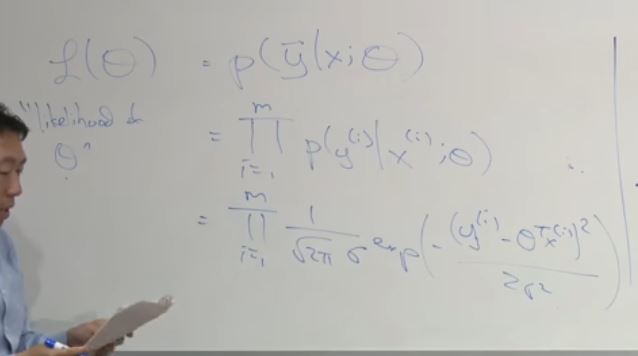 ℒ(θ) = p(y⃗|x;θ)
"likelihood of
θ"
= ∏_{i=1}^{m} p(y^{(i)}|x^{(i)};θ)
= ∏_{i=1}^{m} 1/(√2π σ) exp(-(y^{(i)} - θ^T x^{(i)})^2 / 2σ^2)